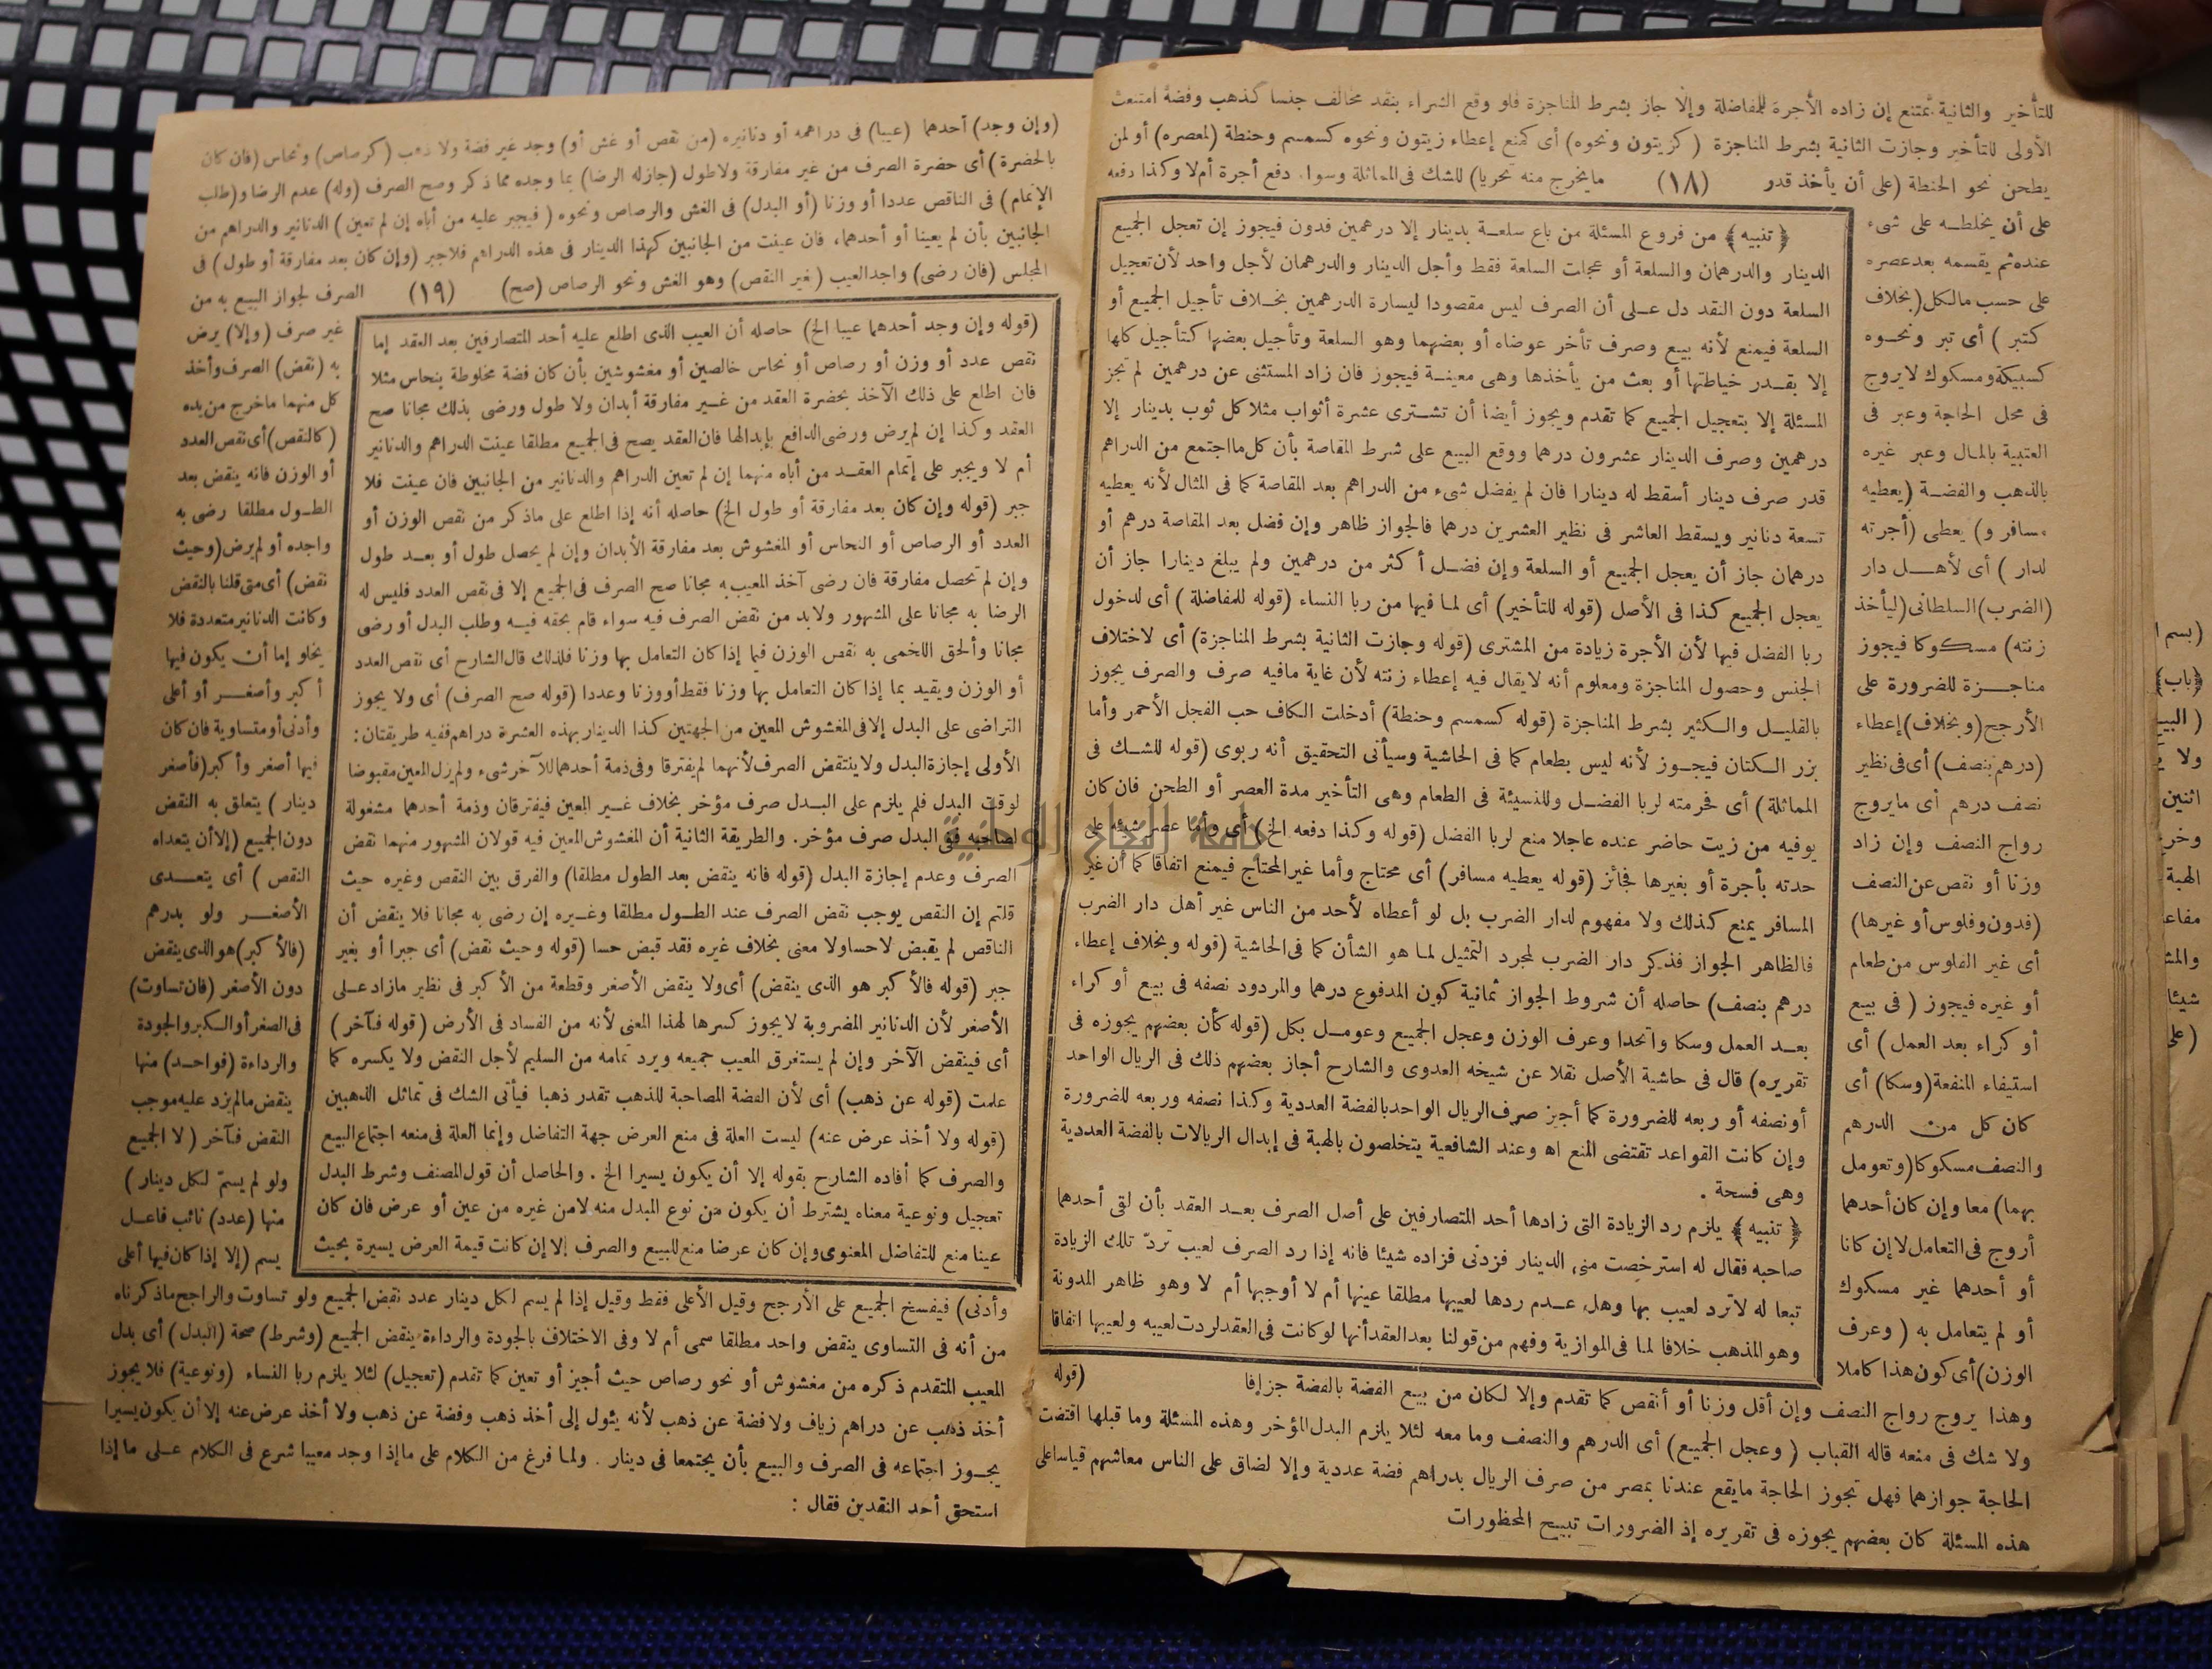 للتأخير والثانية تمتنع إن زاده الأجرة للمفاضلة وإلا جاز بشرط المناجزة فلو وقع الشراء بنقد مخالف جنسا كذهب وفضة امتنعت
الأولى للتأخير وجازت الثانية بشرط المناجزة ( كزيتون ونحوه) أى كمنع إعطاء زيتون ونحوه كسمسم وحنطة (لمعصره) أو لمن
يطحن نحو الحنطة (على أن يأخذ قدر (١٨) ما يخرج منه تحريا) للشك فى المماثلة وسواء دفع أجرة أم لا وكذا دفعه
على أن يخلطه على شىء
عنده ثم يقسمه بعد عصره
على حسب مالكل (بخلاف
كتبر ) أى تبر ونحوه
كسبيكة ومسكوك لايروج
فى محل الحاجة وعبر فى
العتبية بالمال وعبر غيره
بالذهب والفضة (يعطيه
مسافر و) يعطى (أجرته
لدار ) أى لأهل دار
(الضرب) السلطانى (ليأخذ
زنته) مسكوكا فيجوز
مناجزة للضرورة على
الأرجح (وبخلاف) إعطاء
(درهم بنصف) أى فى نظير
نصف درهم أى مايروج
رواج النصف وإن زاد
وزنا أو نقص عن النصف
(فدون وفلوس أو غيرها)
أى غير الفلوس من طعام
أو غيره فيجوز ( فى بيع
أو كراء بعد العمل ) أى
استيفاء المنفعة (وسكا) أى
كان كل من الدرهم
والنصف مسكوكا (وتعومل
بهما) معا وإن كان أحدهما
أروج فى التعامل لا إن كانا
أو أحدهما غير مسكوك
أو لم يتعامل به ( وعرف
الوزن) أى كون هذا كاملا
﴿ تنبيه ﴾ من فروع المسئلة من باع سلعة بدينار إلا درهمين فدون فيجوز إن تعجل الجميع
الدينار والدرهمان والسلعة أو عجلت السلعة فقط وأجل الدينار والدرهمان لأجل واحد لأن تعجيل
السلعة دون النقد دل على أن الصرف ليس مقصودا ليسارة الدرهمين بخلاف تأجيل الجميع أو
السلعة فيمنع لأنه بيع وصرف تأخر عوضاه أو بعضهما وهو السلعة وتأجيل بعضها كتأجيل كلها
إلا بقدر خياطتها أو بعث من يأخذها وهى معينة فيجوز فان زاد المستثنى عن درهمين لم تجز
المسئلة إلا بتعجيل الجميع كما تقدم ويجوز أيضا أن تشترى عشرة أثواب مثلا كل ثوب بدينار إلا
درهمين وصرف الدينار عشرون درهما ووقع البيع على شرط المقاصة بأن كل ما اجتمع من الدراهم
قدر صرف دينار أسقط له دينارا فان لم يفضل شىء من الدراهم بعد المقاصة كما فى المثال لأنه يعطيه
تسعة دنانير ويسقط العاشر فى نظير العشرين درهما فالجواز ظاهر وإن فضل بعد المقاصة درهم أو
درهمان جاز أن يعجل الجميع أو السلعة وإن فضل أكثر من درهمين ولم يبلغ دينارا جاز أن
يعجل الجميع كذا فى الأصل (قوله للتأخير) أى لما فيها من ربا النساء (قوله للمفاضلة ) أى لدخول
ربا الفضل فيها لأن الأجرة زيادة من المشترى (قوله وجازت الثانية بشرط المناجزة) أى لاختلاف
الجنس وحصول المناجزة ومعلوم أنه لايقال فيه إعطاء زنته لأن غاية مافيه صرف والصرف يجوز
بالقليل والكثير بشرط المناجزة (قوله كسمسم وحنطة) أدخلت الكاف حب الفجل الأحمر وأما
بزر الكتان فيجوز لأنه ليس بطعام كما فى الحاشية وسيأتى التحقيق أنه ربوى (قوله للشك فى
المماثلة ) أى فحرمته لربا الفضل وللنسيئة فى الطعام وهى التأخير مدة العصر أو الطحن فان كان
يوفيه من زيت حاضر عنده عاجلا منع لربا الفضل (قوله وكذا دفعه الخ) أى وأما عصر شيئه على
حدته بأجرة أو بغيرها فجائز (قوله يعطيه مسافر) أى محتاج وأما غير المحتاج فيمنع اتفاقا كما أن غير
المسافر يمنع كذلك ولا مفهوم لدار الضرب بل لو أعطاه لأحد من الناس غير أهل دار الضرب
فالظاهر الجواز فذكر دار الضرب لمجرد التمثيل لما هو الشأن كما فى الحاشية (قوله وبخلاف إعطاء
درهم بنصف) حاصله أن شروط الجواز ثمانية كون المدفوع درهما والمردود نصفه فى بيع أو كراء
بعد العمل وسكا واتحدا وعرف الوزن وعجل الجميع وعومل بكل (قوله كأن بعضهم يجوزه فى
تقريره) قال فى حاشية الأصل نقلا عن شيخه العدوى والشارح أجاز بعضهم ذلك فى الريال الواحد
أو نصفه أو ربعه للضرورة كما أجيز صرف الريال الواحد بالفضة العددية وكذا نصفه وربعه للضرورة
وإن كانت القواعد تقتضى المنع اه وعند الشافعية يتخلصون بالهبة فى إبدال الريالات بالفضة العددية
وهى فسحة .
﴿ تنبيه ﴾ يلزم رد الزيادة التى زادها أحد المتصارفين على أصل الصرف بعد العقد بأن لقى أحدهما
صاحبه فقال له استرخصت منى الدينار فزدنى فزاده شيئا فانه إذا رد الصرف لعيب تردّ تلك الزيادة
تبعا له لاترد لعيب بها وهل عدم ردها لعيبها مطلقا عينها أم لا أوجبها أم لا وهو ظاهر المدونة
وهو المذهب خلافا لما فى الموازية وفهم من قولنا بعد العقد أنها لو كانت فى العقد لردت لعيبه ولعيبها اتفاقا
(قوله
وهذا يروج رواج النصف وإن أقل وزنا أو أنقص كما تقدم وإلا لكان من بيع الفضة بالفضة جزافا
ولا شك فى منعه قاله القباب ( وعجل الجميع) أى الدرهم والنصف وما معه لئلا يلزم البدل المؤخر وهذه المسئلة وما قبلها اقتضت
الحاجة جوازهما فهل تجوز الحاجة مايقع عندنا بمصر من صرف الريال بدراهم فضة عددية وإلا لضاق على الناس معاشهم قياسا على
هذه المسئلة كان بعضهم يجوزه فى تقريره إذ الضرورات تبيح المحظورات
(وإن وجد) أحدهما (عيبا) فى دراهمه أو دنانيره (من نقص أو غش أو) وجد غير فضة ولا ذهب (كرصاص) ونحاس (فان كان
بالحضرة) أى حضرة الصرف من غير مفارقة ولا طول (جاز له الرضا) بما وجده مما ذكر وصح الصرف (وله) عدم الرضا و(طلب
الإتمام) فى الناقص عددا أو وزنا (أو البدل) فى الغش والرصاص ونحوه ( فيجبر عليه من أباه إن لم تعين ) الدنانير والدراهم من
الجانبين بأن لم يعينا أو أحدهما، فان عينت من الجانبين كهذا الدينار فى هذه الدراهم فلاجبر (وإن كان بعد مفارقة أو طول) فى
المجلس (فان رضى) واجد العيب (بغير النقص) وهو الغش ونحو الرصاص (صح) (١٩) الصرف لجواز البيع به من
(قوله وإن وجد أحدهما عيبا الخ) حاصله أن العيب الذى اطلع عليه أحد المتصارفين بعد العقد إما
نقص عدد أو وزن أو رصاص أو نحاس خالصين أو مغشوشين بأن كان فضة مخلوطة بنحاس مثلا
فان اطلع على ذلك الآخذ بحضرة العقد من غير مفارقة أبدان ولا طول ورضى بذلك مجانا صح
العقد وكذا إن لم يرض ورضى الدافع بإبدالها فان العقد يصح فى الجميع مطلقا عينت الدراهم والدنانير
أم لا ويجبر على إتمام العقد من أباه منهما إن لم تعين الدراهم والدنانير من الجانبين فان عينت فلا
جبر (قوله وإن كان بعد مفارقة أو طول الخ) حاصله أنه إذا اطلع على ماذكر من نقص الوزن أو
العدد أو الرصاص أو النحاس أو المغشوش بعد مفارقة الأبدان وإن لم يحصل طول أو بعد طول
وإن لم تحصل مفارقة فان رضى آخذ المعيب به مجانا صح الصرف فى الجميع إلا فى نقص العدد فليس له
الرضا به مجانا على المشهور ولابد من نقض الصرف فيه سواء قام بحقه فيه وطلب البدل أو رضى
مجانا وألحق اللخمى به نقص الوزن فيما إذا كان التعامل بها وزنا فلذلك قال الشارح أى نقص العدد
أو الوزن ويقيد بما إذا كان التعامل بها وزنا فقط أو وزنا وعددا (قوله صح الصرف) أى ولا يجوز
التراضى على البدل إلا فى المغشوش المعين من الجهتين كذا الدينار بهذه العشرة دراهم ففيه طريقتان :
الأولى إجازة البدل ولا ينتقض الصرف لأنهما لم يفترقا وفى ذمة أحدهما للآخر شىء ولم يزل المعين مقبوضا
لوقت البدل فلم يلزم على البدل صرف مؤخر بخلاف غير المعين فيفترقان وذمة أحدهما مشغولة
لصاحبه ففى البدل صرف مؤخر. والطريقة الثانية أن المغشوش المعين فيه قولان المشهور منهما نقض
الصرف وعدم إجازة البدل (قوله فانه ينقض بعد الطول مطلقا) والفرق بين النقص وغيره حيث
قلتم إن النقص يوجب نقض الصرف عند الطول مطلقا وغيره إن رضى به مجانا فلا ينقض أن
الناقص لم يقبض لاحسا ولا معنى بخلاف غيره فقد قبض حسا (قوله وحيث نقض) أى جبرا أو بغير
جبر (قوله فالأكبر هو الذى ينقض) أى ولا ينقض الأصغر وقطعة من الأكبر فى نظير مازاد على
الأصغر لأن الدنانير المضروبة لايجوز كسرها لهذا المعنى لأنه من الفساد فى الأرض (قوله فآخر )
أى فينقض الآخر وإن لم يستغرق المعيب جميعه ويرد تمامه من السليم لأجل النقض ولا يكسره كما
علمت (قوله عن ذهب) أى لأن الفضة المصاحبة للذهب تقدر ذهبا فيأتى الشك فى تماثل الذهبين
(قوله ولا أخذ عرض عنه) ليست العلة فى منع العرض جهة التفاضل وإنما العلة فى منعه اجتماع البيع
والصرف كما أفاده الشارح بقوله إلا أن يكون يسيرا الخ . والحاصل أن قول المصنف وشرط البدل
تعجيل ونوعية معناه يشترط أن يكون من نوع المبدل منه لا من غيره من عين أو عرض فان كان
عينا منع للتفاضل المعنوى وإن كان عرضا منع للبيع والصرف إلا إن كانت قيمة العرض يسيرة بحيث
غير صرف (وإلا) يرض
به (نقض) الصرف وأخذ
كل منهما ماخرج من يده
(كالنقص) أى نقص العدد
أو الوزن فانه ينقض بعد
الطول مطلقا رضى به
واجده أو لم يرض (وحيث
نقض) أى متى قلنا بالنقض
وكانت الدنانير متعددة فلا
يخلو إما أن يكون فيها
أكبر وأصغر أو أعلى
وأدنى أو متساوية فان كان
فيها أصغر وأكبر (فأصغر
دينار ) يتعلق به النقض
دون الجميع (إلا أن يتعداه
النقص ) أى يتعدى
الأصغر ولو بدرهم
(فالأكبر) هو الذى ينقض
دون الأصغر (فان تساوت)
فى الصغر أو الكبر والجودة
والرداءة (فواحد) منها
ينقض مالم يزد عليه موجب
النقض فآخر ( لا الجميع
ولو لم يسمّ لكل دينار )
منها (عدد) نائب فاعل
يسم (إلا إذا كان فيها أعلى
وأدنى) فيفسخ الجميع على الأرجح وقيل الأعلى فقط وقيل إذا لم يسم لكل دينار عدد نقض الجميع ولو تساوت والراجح ماذكرناه
من أنه فى التساوى ينقض واحد مطلقا سمى أم لا وفى الاختلاف بالجودة والرداءة ينقض الجميع (وشرط) صحة (البدل) أى بدل
المعيب المتقدم ذكره من مغشوش أو نحو رصاص حيث أجيز أو تعين كما تقدم (تعجيل) لئلا يلزم ربا النساء (ونوعية) فلا يجوز
أخذ ذهب عن دراهم زياف ولا فضة عن ذهب لأنه يئول إلى أخذ ذهب وفضة عن ذهب ولا أخذ عرض عنه إلا أن يكون يسيرا
يجوز اجتماعه فى الصرف والبيع بأن يجتمعا فى دينار . ولما فرغ من الكلام على ما إذا وجد معيبا شرع فى الكلام على ما إذا
استحق أحد النقدين فقال :
جامعة النجاح الوطنية